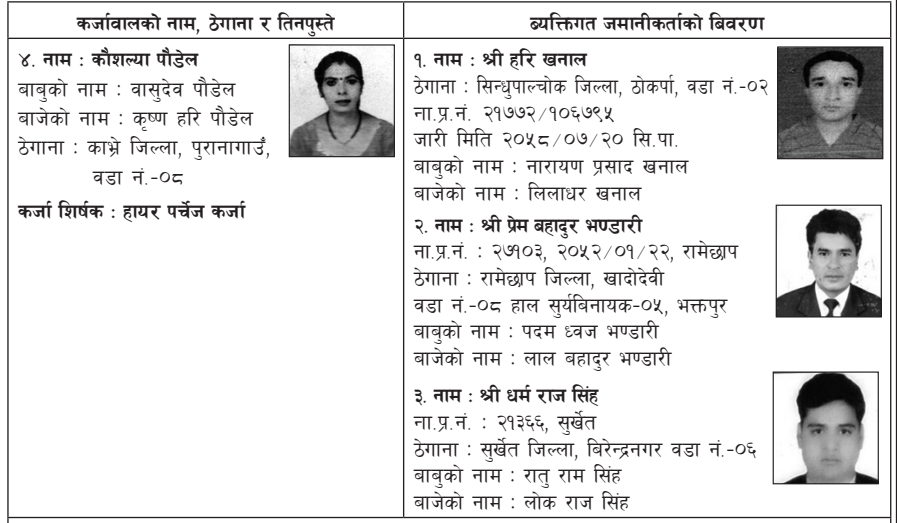 कर्जावालको नाम, ठेगाना र तिनपुस्ते
४. नाम : कौशल्या पौडेल
बाबुको नाम : वासुदेव पौडेल
बाजेको नाम : कृष्ण हरि पौडेल
ठेगाना : काभ्रे जिल्ला, पुरानागाउँ,
वडा नं.-०८
कर्जा शिर्षक : हायर पर्चेज कर्जा
ब्यक्तिगत जमानीकर्ताको बिवरण
१. नाम : श्री हरि खनाल
ठेगाना : सिन्धुपाल्चोक जिल्ला, ठोकर्पा, वडा नं.-०२
ना.प्र.नं. २१७७२/१०६७९५
जारी मिति २०५८/०७/२० सि.पा.
बाबुको नाम : नारायण प्रसाद खनाल
बाजेको नाम : लिलाधर खनाल
२. नाम : श्री प्रेम बहादुर भण्डारी
ना.प्र.नं. : २७१०३, २०५२/०१/२२, रामेछाप
ठेगाना : रामेछाप जिल्ला, खादोदेवी
वडा नं.-०८ हाल सुर्यबिनायक-०५, भक्तपुर
बाबुको नाम : पदम ध्वज भण्डारी
बाजेको नाम : लाल बहादुर भण्डारी
३. नाम : श्री धर्म राज सिंह
ना.प्र.नं. : २१३६६, सुर्खेत
ठेगाना : सुर्खेत जिल्ला, बिरेन्द्रनगर वडा नं.-०६
बाबुको नाम : रातु राम सिंह
बाजेको नाम : लोक राज सिंह